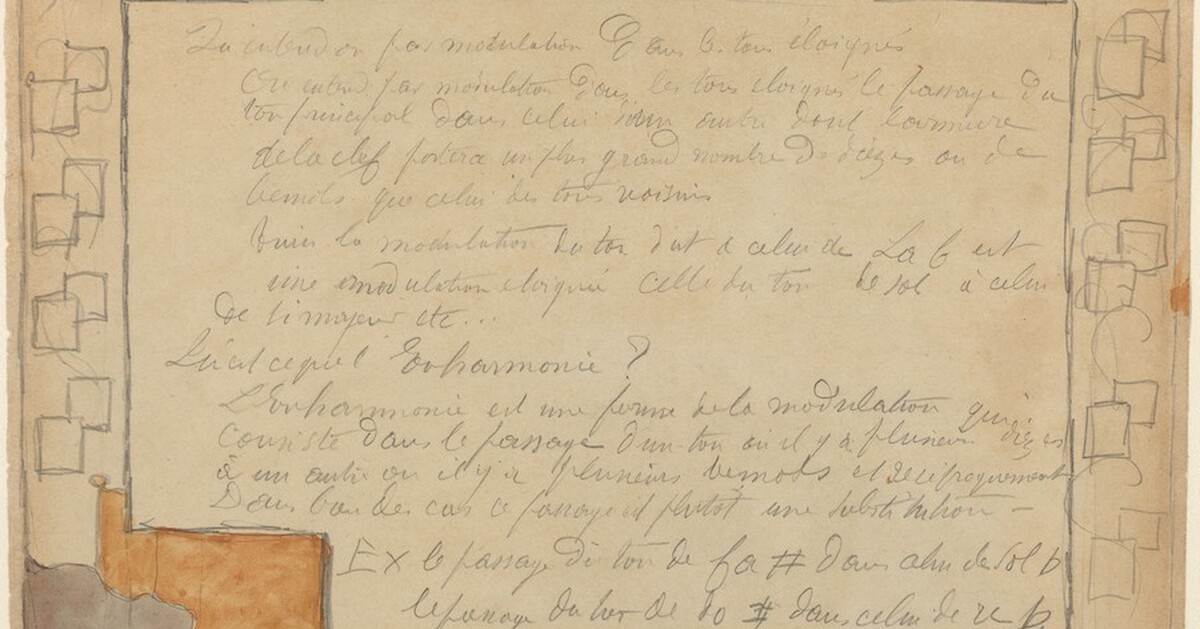 entend on par modulation Dans les tons éloignés
On entend par modulation Dans les tons eloignés le passage du
ton principal dans celui d'un autre dont l'armure
de la clef portera un plus grand nombre De dièzes ou de
bemols que celui des tons voisins
la modulation du ton d'ut a celui de La b est
une modulation eloignée celle du ton de sol à celui
de si majeur etc...
Qu'est ce que l'Enharmonie ?
L'Enharmonie est une forme de la modulation qui
consiste dans le passage d'un ton ou il y a plusieurs dièzes
à un autre ou il y a plusieurs bemols et réciproquement
Dans bou des cas ce passage est plutôt une substitution -
Ex le passage du ton de fa # dans celui de Sol b
le passage du ton de do # dans celui de re b